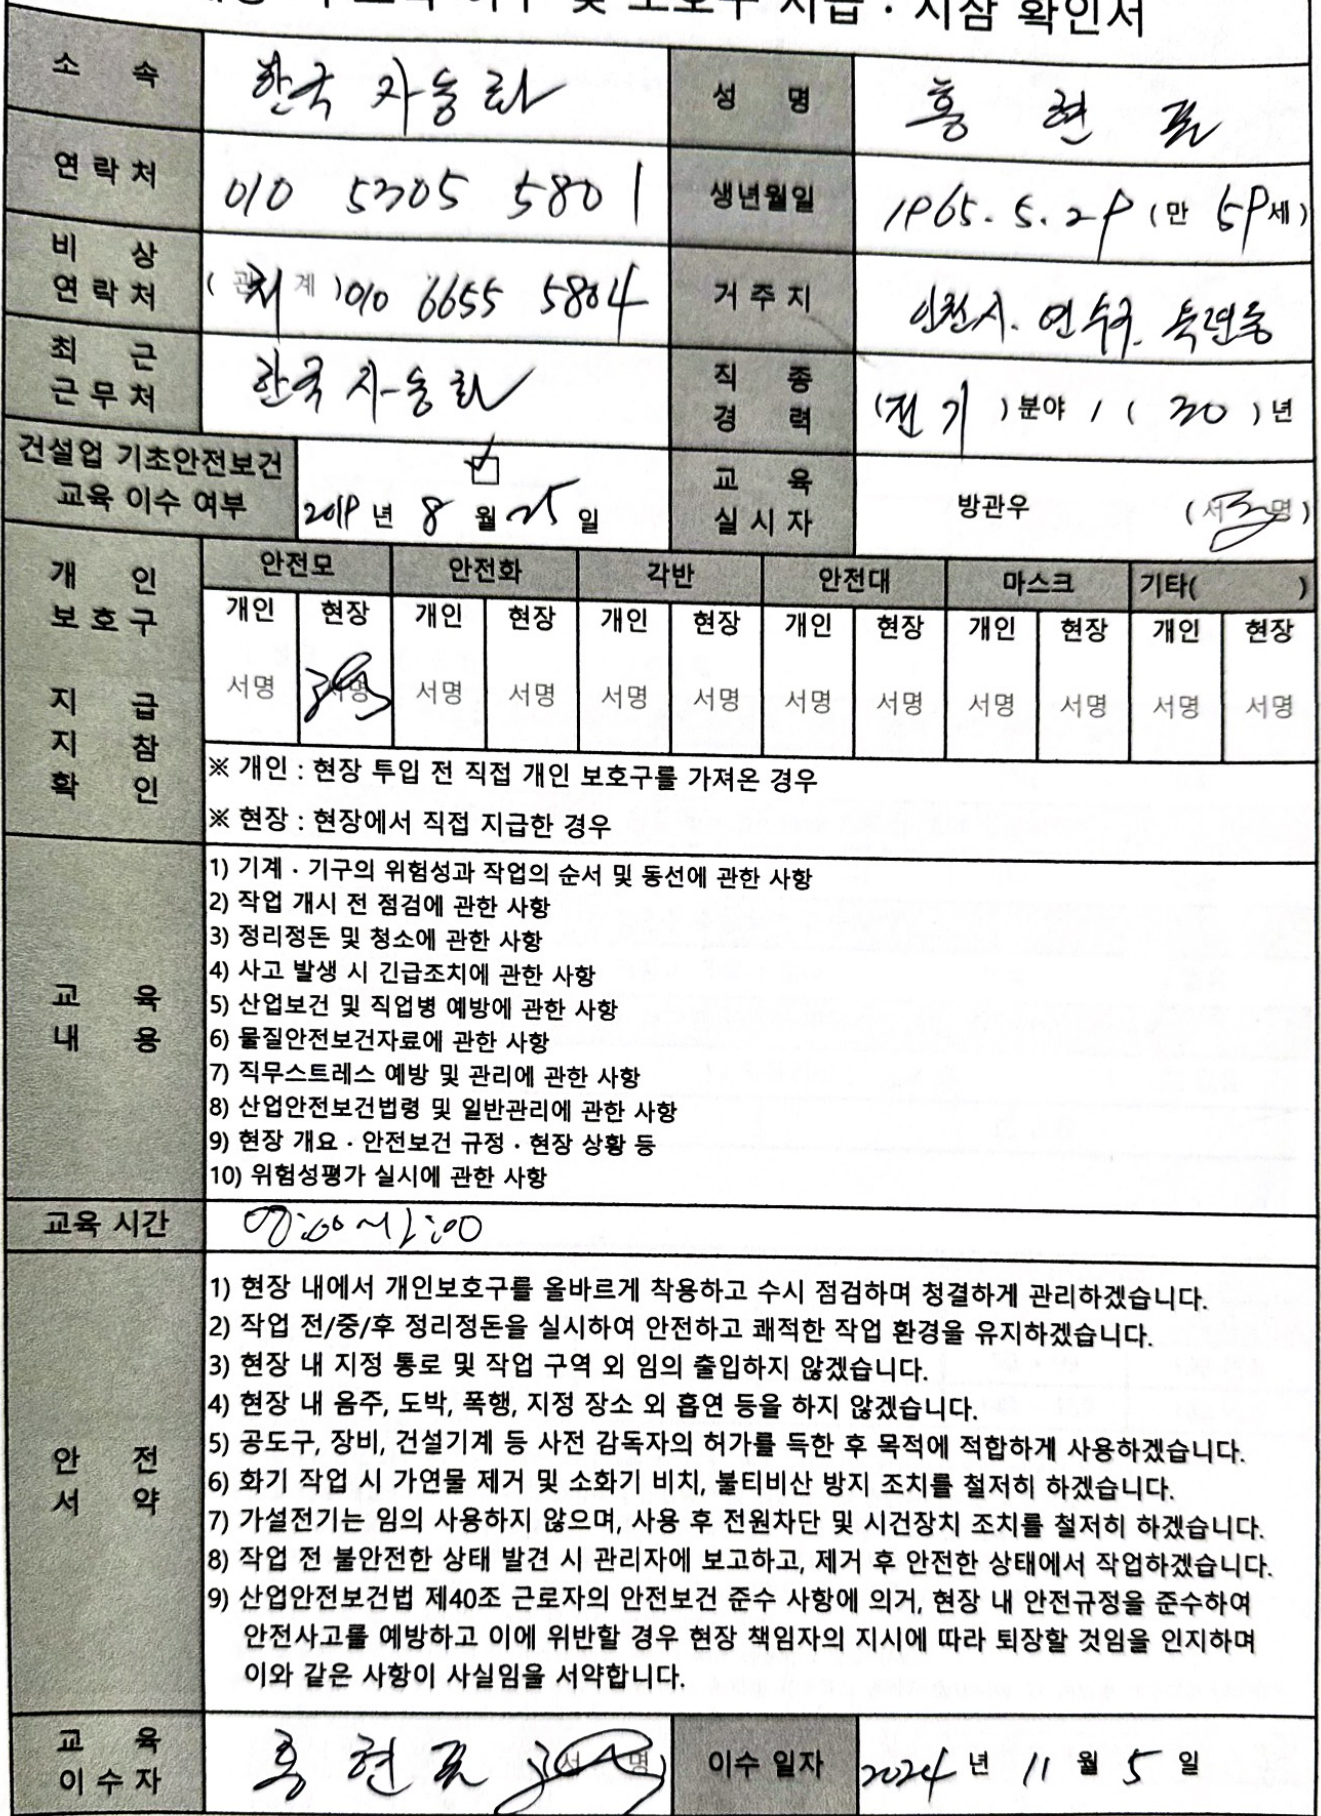 및 보호구 지급 · 지참 확인서
소 속 한국자동화 성 명 홍 현 표
연 락 처 010 5305 5801 생년월일 1965. 5. 29 (만 59세)
비 상
연 락 처 (관계) 처 010 6655 5804 거 주 지 인천시. 연수구. 옥련동
최 근
근 무 처 한국자동화 직 종
경 력 (전기) 분야 / ( 30 ) 년
건설업 기초안전보건
교육 이수 여부 2019 년 8 월 25 일 교 육
실 시 자 방관우 (서명)
개 인
보 호 구
지 급
지 참
확 인
안전모 안전화 각반 안전대 마스크 기타( )
개인 현장 개인 현장 개인 현장 개인 현장 개인 현장 개인 현장
서명 서명 서명 서명 서명 서명 서명 서명 서명 서명 서명 서명
※ 개인 : 현장 투입 전 직접 개인 보호구를 가져온 경우
※ 현장 : 현장에서 직접 지급한 경우
교 육
내 용
1) 기계 · 기구의 위험성과 작업의 순서 및 동선에 관한 사항
2) 작업 개시 전 점검에 관한 사항
3) 정리정돈 및 청소에 관한 사항
4) 사고 발생 시 긴급조치에 관한 사항
5) 산업보건 및 직업병 예방에 관한 사항
6) 물질안전보건자료에 관한 사항
7) 직무스트레스 예방 및 관리에 관한 사항
8) 산업안전보건법령 및 일반관리에 관한 사항
9) 현장 개요 · 안전보건 규정 · 현장 상황 등
10) 위험성평가 실시에 관한 사항
교육 시간
안 전
서 약
1) 현장 내에서 개인보호구를 올바르게 착용하고 수시 점검하며 청결하게 관리하겠습니다.
2) 작업 전/중/후 정리정돈을 실시하여 안전하고 쾌적한 작업 환경을 유지하겠습니다.
3) 현장 내 지정 통로 및 작업 구역 외 임의 출입하지 않겠습니다.
4) 현장 내 음주, 도박, 폭행, 지정 장소 외 흡연 등을 하지 않겠습니다.
5) 공도구, 장비, 건설기계 등 사전 감독자의 허가를 득한 후 목적에 적합하게 사용하겠습니다.
6) 화기 작업 시 가연물 제거 및 소화기 비치, 불티비산 방지 조치를 철저히 하겠습니다.
7) 가설전기는 임의 사용하지 않으며, 사용 후 전원차단 및 시건장치 조치를 철저히 하겠습니다.
8) 작업 전 불안전한 상태 발견 시 관리자에 보고하고, 제거 후 안전한 상태에서 작업하겠습니다.
9) 산업안전보건법 제40조 근로자의 안전보건 준수 사항에 의거, 현장 내 안전규정을 준수하여
안전사고를 예방하고 이에 위반할 경우 현장 책임자의 지시에 따라 퇴장할 것임을 인지하며
이와 같은 사항이 사실임을 서약합니다.
교 육
이 수 자 홍 현 표 (서명) 이수 일자 2024 년 11 월 5 일